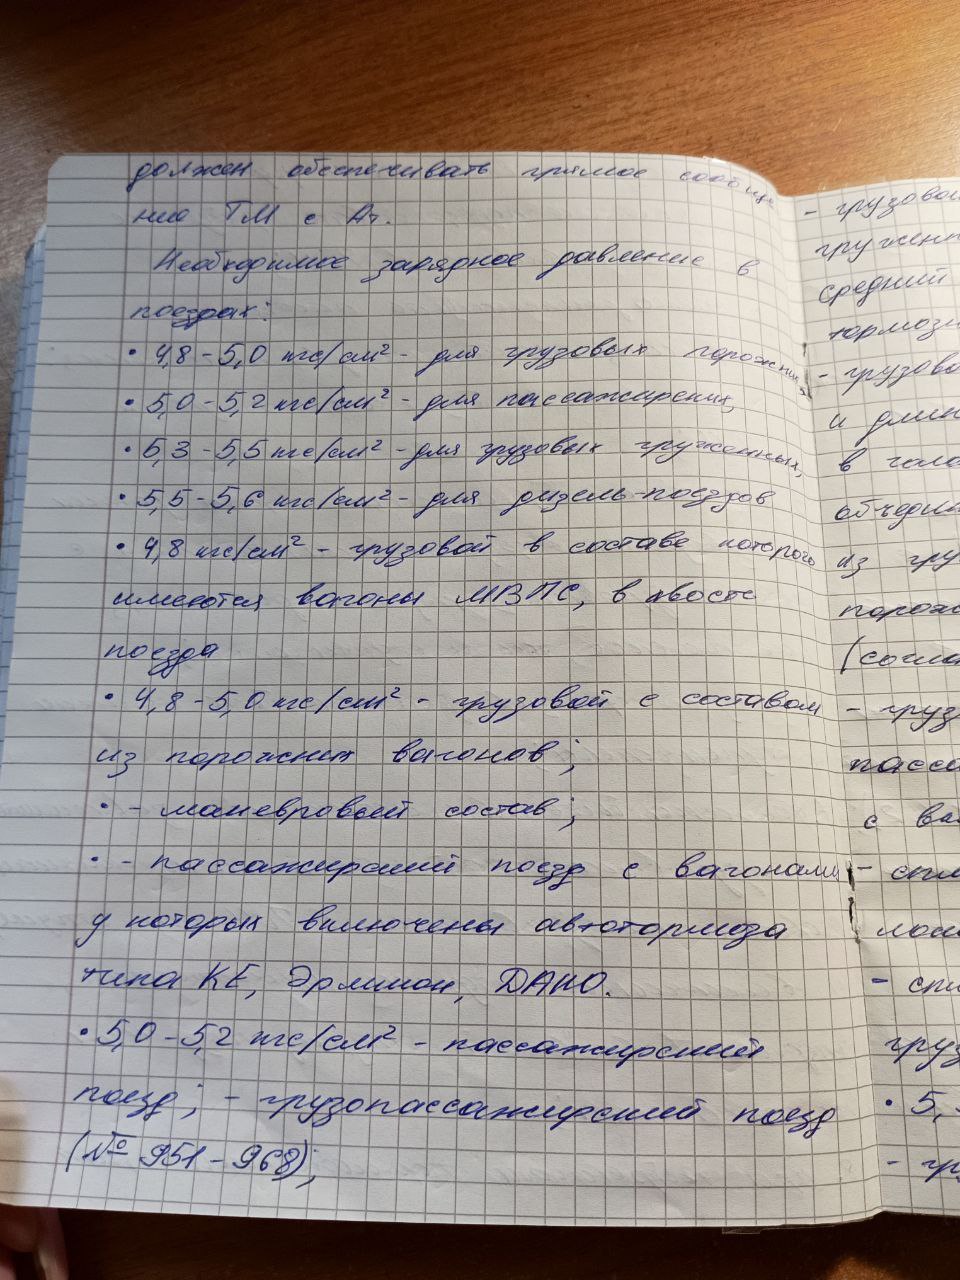 должен обеспечивать прямое сообще
ние ТМ с Ат.
Необходимое зарядное давление в
поездах:
• 4,8 - 5,0 кгс/см² - для грузовых порожних,
• 5,0 - 5,2 кгс/см² - для пассажирских,
• 5,3 - 5,5 кгс/см² - для грузовых груженных,
• 5,5 - 5,6 кгс/см² - для дизель-поездов
• 4,8 кгс/см² - грузовой в составе которого
имеются вагоны МВПС, в хвосте
поезда
• 4,8 - 5,0 кгс/см² - грузовой с составом
из порожних вагонов;
• - маневровый состав;
• - пассажирский поезд с вагонами
у которых включены автотормоза
типа КЕ, Эрликон, ДАКО.
• 5,0 - 5,2 кгс/см² - пассажирский
поезд; - грузопассажирский поезд
(№ 951 - 968);
- грузовой
гружен
средний
тормоз
- грузово
и длин
в голо
объедин
из гру
порож
(согла
- груз
пасса
с ваг
- спл
- спл
груз
• 5,
- гр